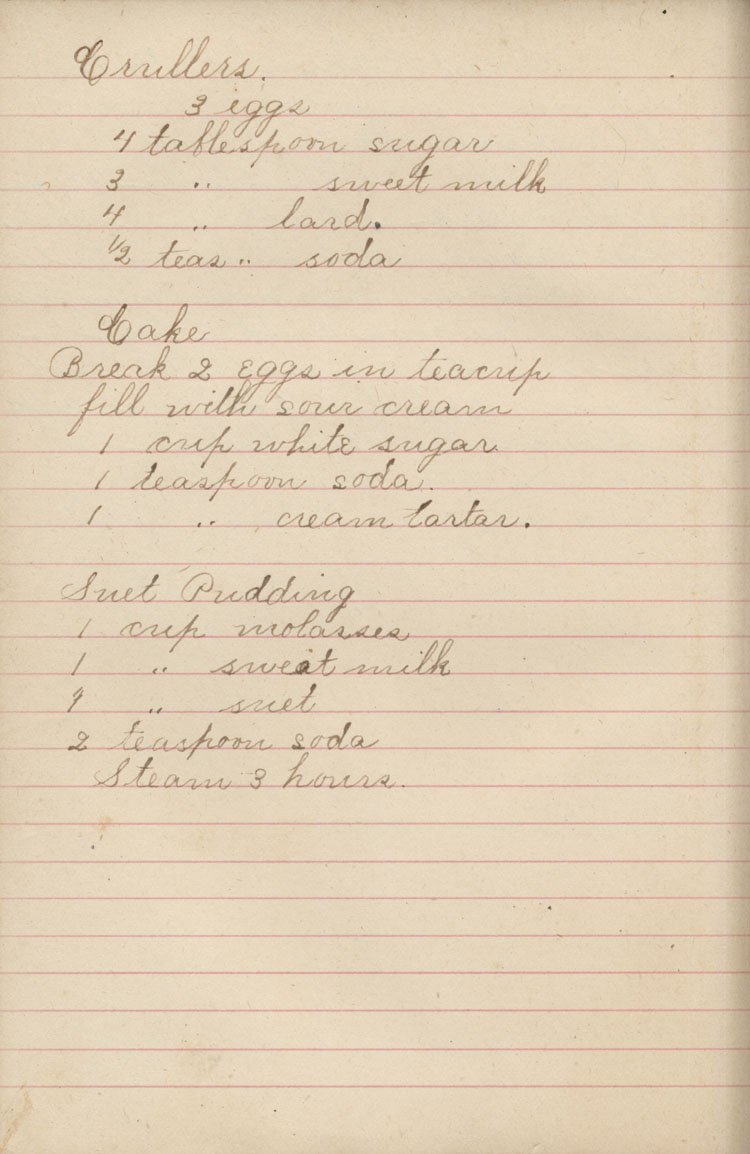 Crullers.
3 eggs
4 tablespoon sugar
3 " sweet milk
4 " lard.
1/2 teas " soda
Cake
Break 2 Eggs in teacup
fill with sour cream
1 cup white sugar
1 teaspoon soda.
1 " cream tartar.
Suet Pudding
1 cup molasses
1 " sweat milk
1 " suet
2 teaspoon soda
Steam 3 hours.